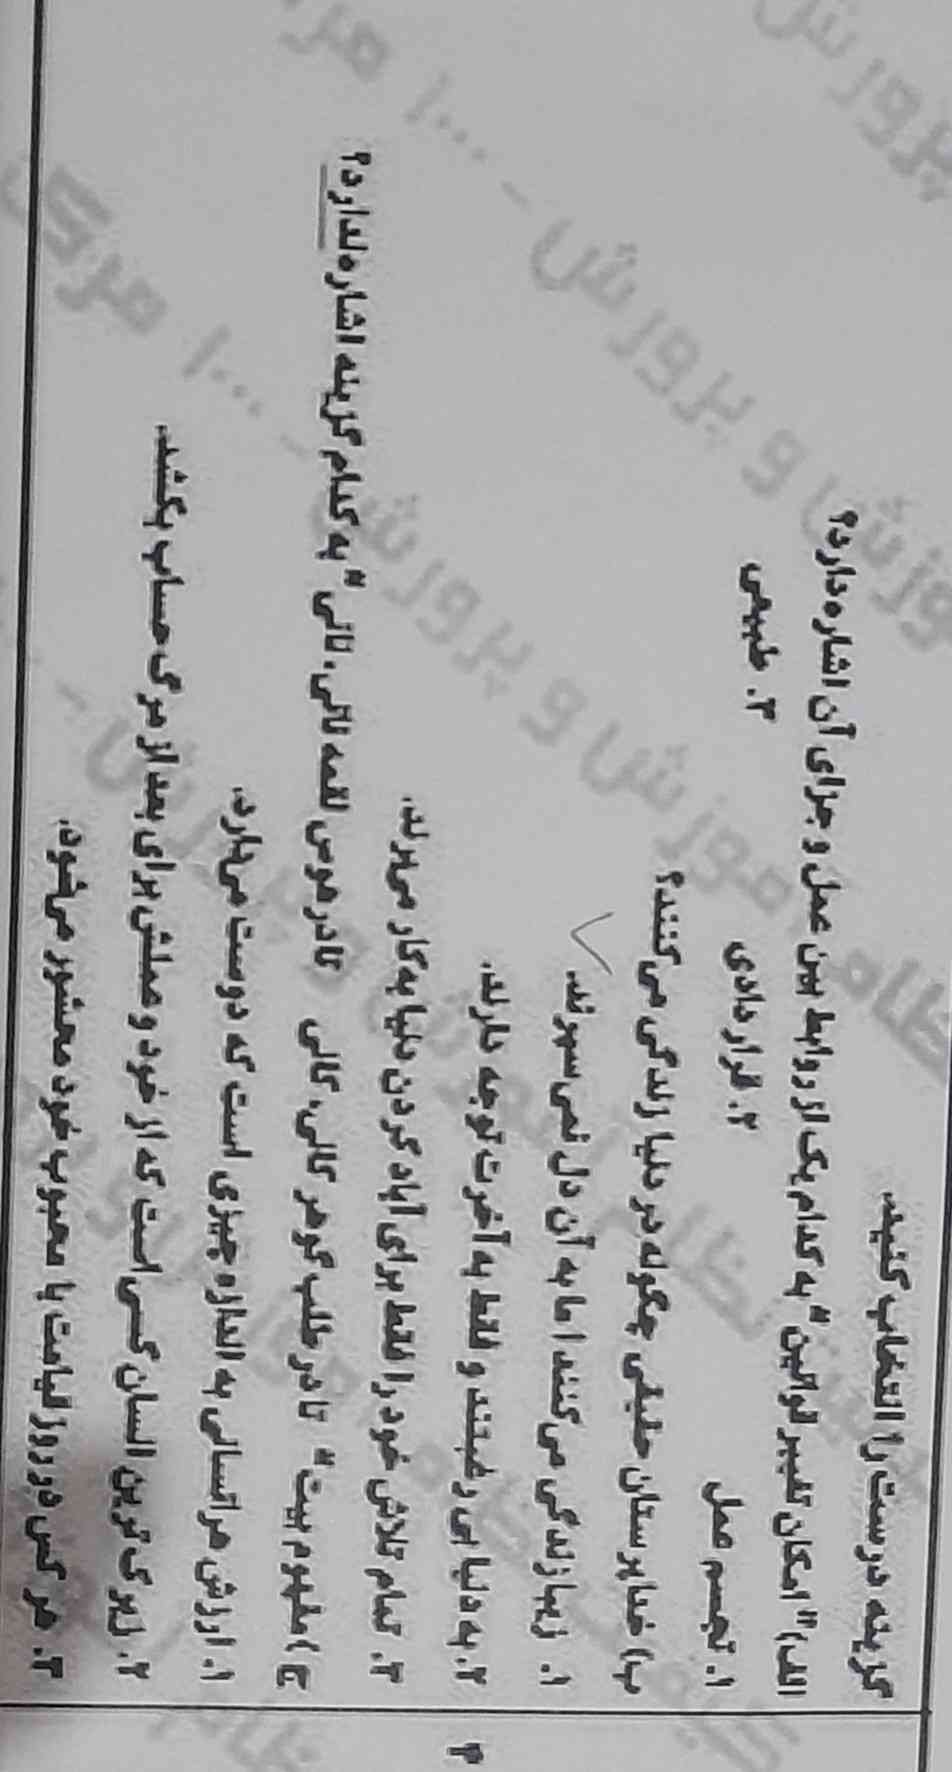 گزینه درست را انتخاب کنید.
الف) "امکان تغییر قوانین" به کدام یک از روابط بین عمل و جزای آن اشاره دارد؟
۱. تجسم عمل ۲. قراردادی ۳. طبیعی
ب) خداپرستان حقیقی چگونه در دنیا زندگی می کنند؟
۱. زیبا زندگی می کنند اما به آن دل نمی سپرند.
۲. به دنیا بی رغبتند و فقط به آخرت توجه دارند.
۳. تمام تلاش خود را فقط برای آباد کردن دنیا به کار می برند.
ج) مفهوم بیت "تا در طلب گوهر کانی، کانی تا در هوس لقمه نانی، نانی" به کدام گزینه اشاره ندارد؟
۱. ارزش هر انسانی به اندازه چیزی است که دوست می‌دارد.
۲. زیرک ترین انسان کسی است که از خود و عملش برای بعد از مرگ حساب بکشد.
۳. هر کس در روز قیامت با محبوب خود محشور می‌شود.
۳